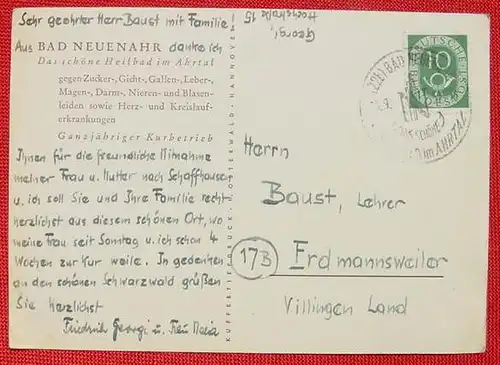 Sehr geehrter Herr Baust mit Familie
Aus BAD NEUENAHR danke ich
Das schöne Heilbad im Ahrtal
gegen Zucker-, Gicht-, Gallen-, Leber-,
Magen-, Darm-, Nieren- und Blasen-
leiden sowie Herz- und Kreislauf-
erkrankungen
Ganzjähriger Kurbetrieb
Ihnen für die freundliche Mitnahme
meiner Frau u. Mutter nach Schaffhausen
u. ich soll Sie und Ihre Familie recht
herzlichst aus diesem schönen Ort, wo
meine Frau seit Sonntag u. ich schon 4
Wochen zur Kur weile. In gedenken
an den schönen Schwarzwald grüßen
Sie herzlichst
Friedrich Georgi u. Frau Maria
Georgi,
Hochstraße 15
KUPFERTIEFDRUCK
HANNOVER
DEUTSCHE
10
BAD
im AHRTAL
Herrn
Baust, Lehrer
17B
Erdmannsweiler
Villingen Land